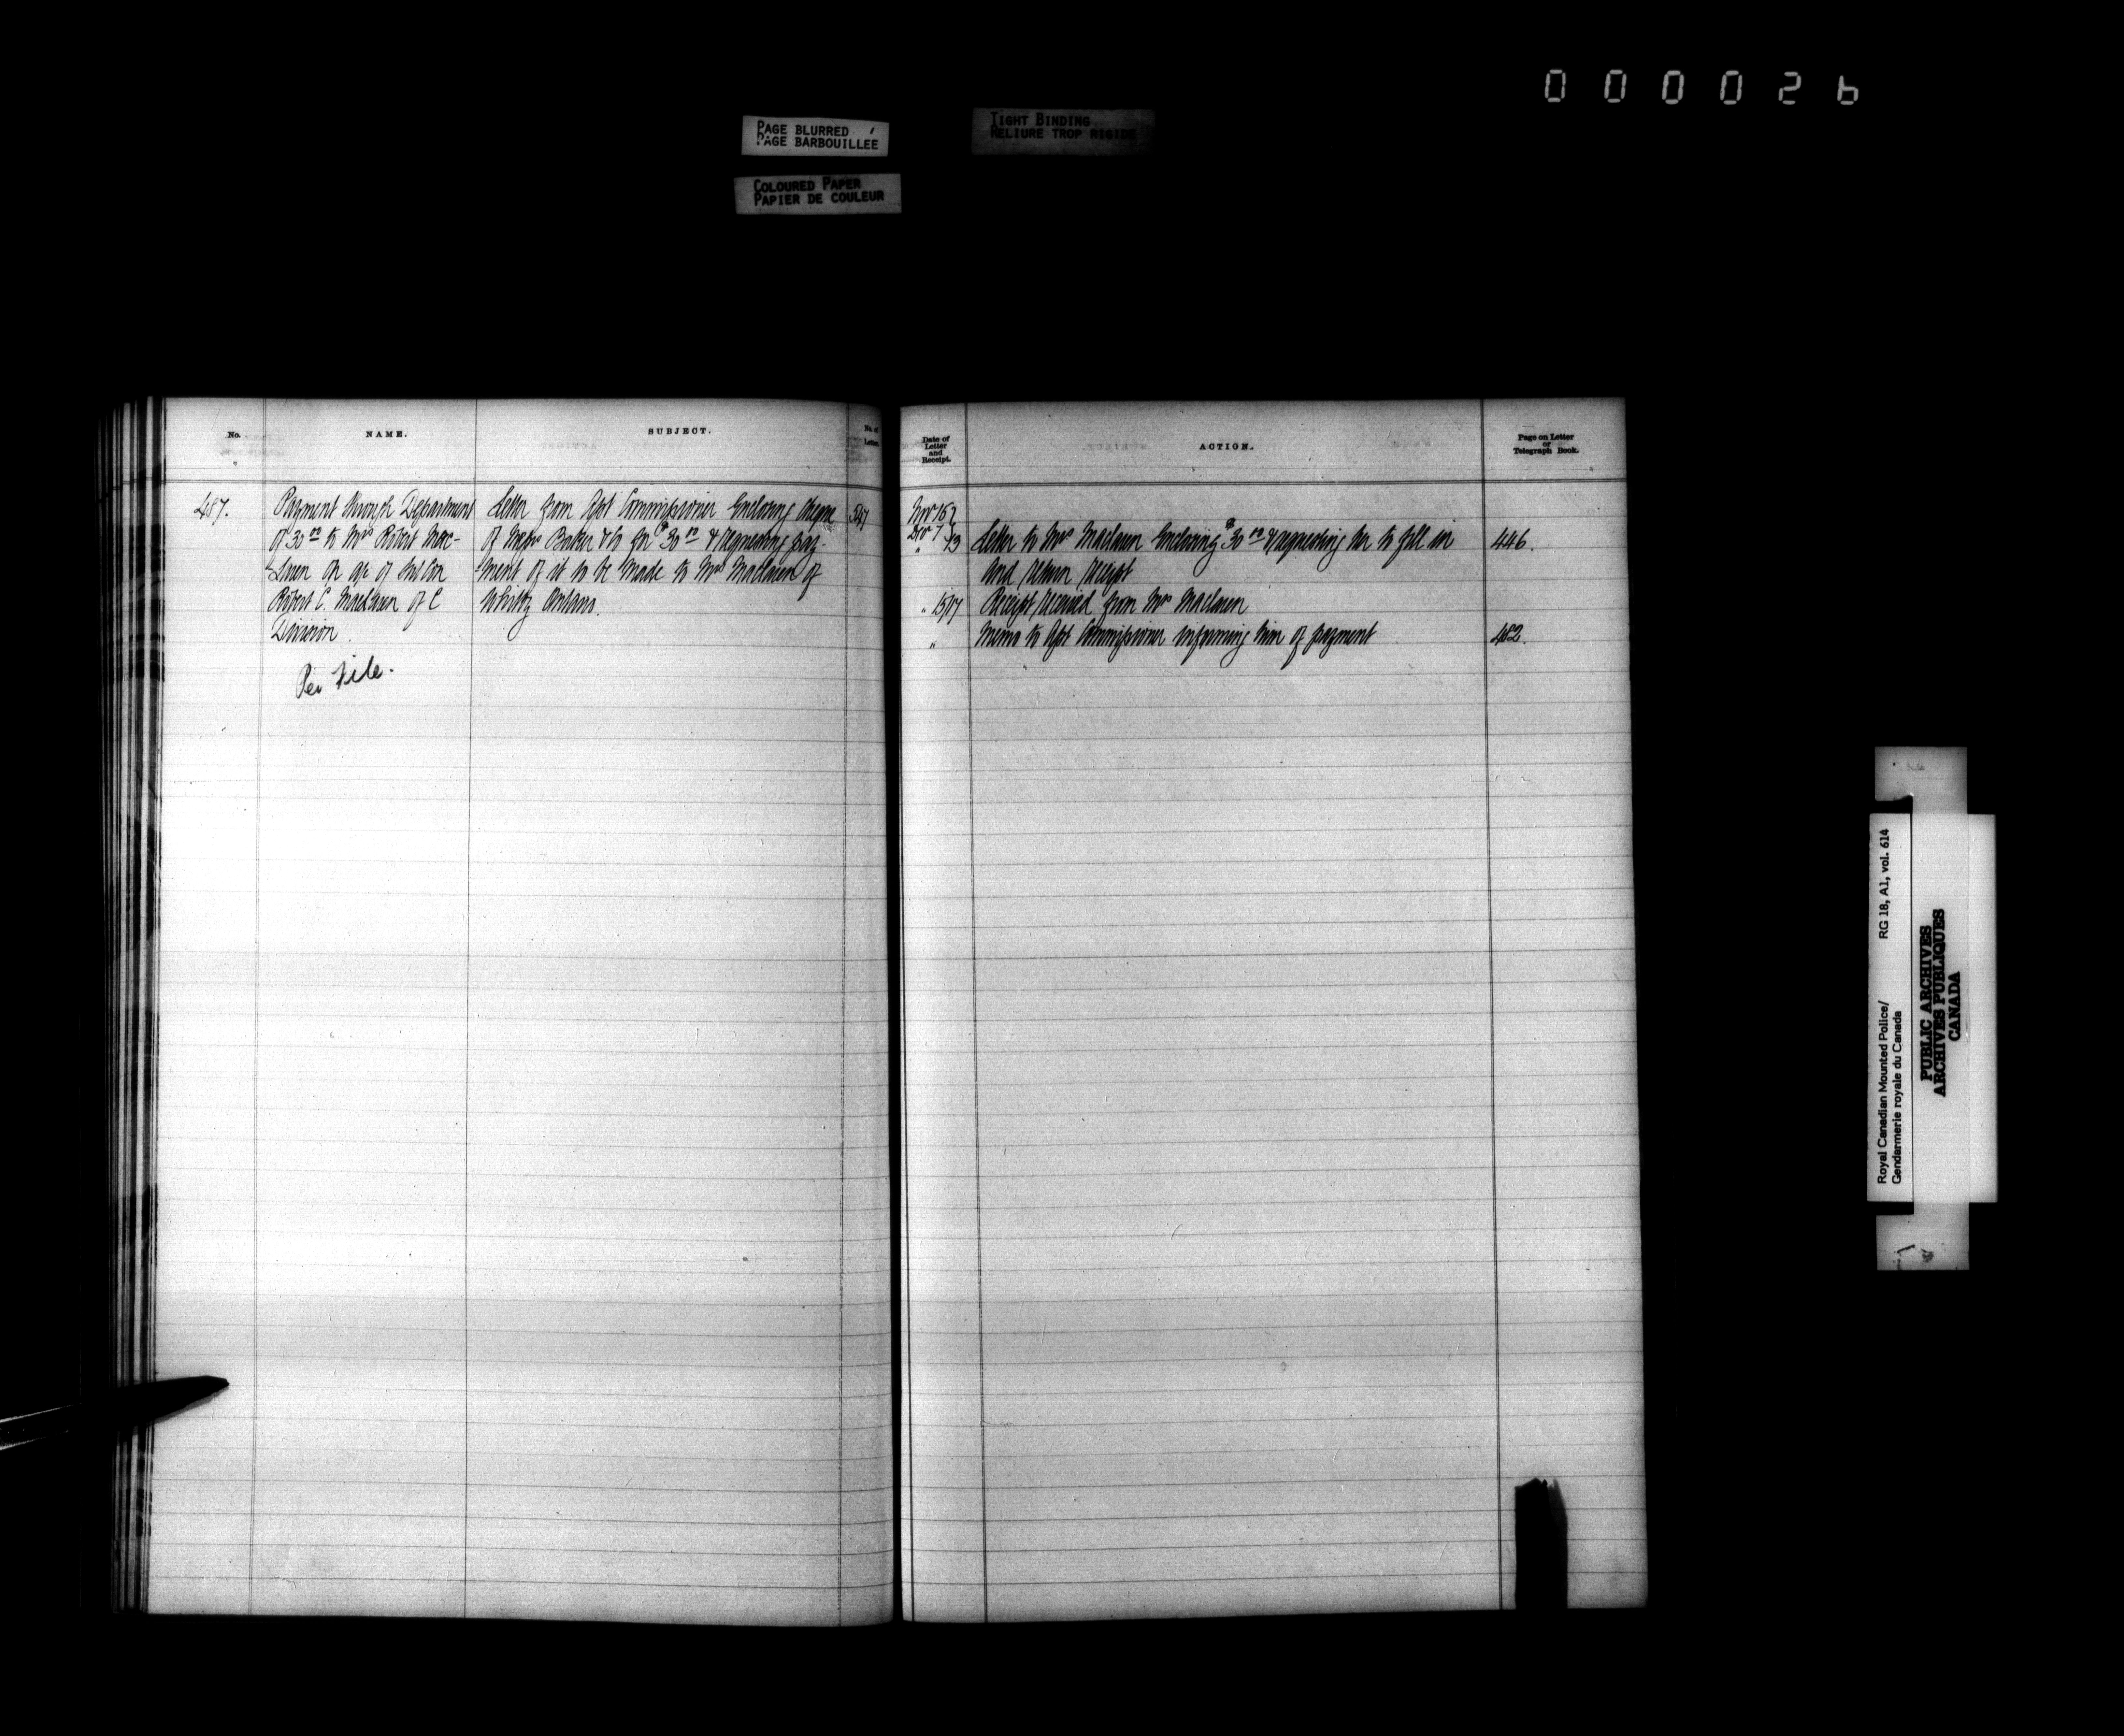 000026
PAGE BLURRED
PAGE BARBOUILLEE
TIGHT BINDING
RELIURE TROP RIGIDE
COLOURED PAPER
PAPIER DE COULEUR
No.
NAME.
SUBJECT.
No. of Letter.
487.
Payment through Department
of 30 00 to Mrs Robert Mac-
Laren on a/c of his son
Robert C. MacLaren of C
Division.
Per File.
Letter from Asst Commissioner Enclosing Cheque
of Messrs Baker & Co for $30 00 & requesting pay-
ment of it to be made to Mrs Maclaren of
Whitby Ontario.
547
Date of
Letter
and
Receipt.
ACTION.
Page on Letter
or
Telegraph Book.
Nov 16
Dec 7
" 13 Letter to Mrs Maclaren Enclosing $30 00 & requesting her to fill in 446.
and return receipt
" 15/17 Receipt received from Mrs Maclaren
" Memo to Asst Commissioner informing him of payment 482.
Royal Canadian Mounted Police/
Gendarmerie royale du Canada
RG 18, A1, vol. 614
PUBLIC ARCHIVES
ARCHIVES PUBLIQUES
CANADA